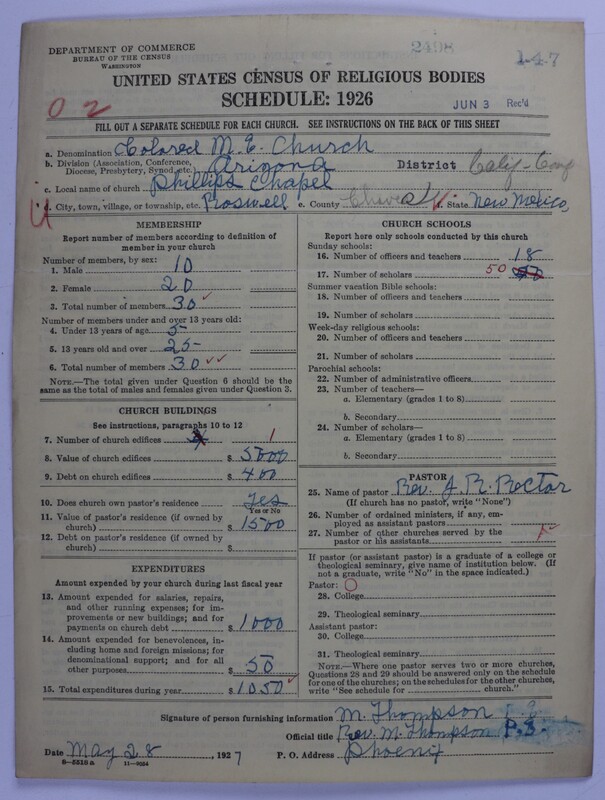 DEPARTMENT OF COMMERCE
BUREAU OF THE CENSUS
WASHINGTON
2498
147
UNITED STATES CENSUS OF RELIGIOUS BODIES
SCHEDULE: 1926
JUN 3 Rec'd
0 2
FILL OUT A SEPARATE SCHEDULE FOR EACH CHURCH. SEE INSTRUCTIONS ON THE BACK OF THIS SHEET
a. Denomination Colored M. E. Church
b. Division (Association, Conference, Diocese, Presbytery, Synod, etc.) Arizona District
c. Local name of church Phillips Chapel
U
d. City, town, village, or township, etc. Roswell e. County Chaves f. State New Mexico,
MEMBERSHIP
Report number of members according to definition of member in your church
Number of members, by sex:
1. Male 10
2. Female 20
3. Total number of members 30
Number of members under and over 13 years old:
4. Under 13 years of age 5
5. 13 years old and over 25
6. Total number of members 30
NOTE.—The total given under Question 6 should be the same as the total of males and females given under Question 3.
CHURCH BUILDINGS
See instructions, paragraphs 10 to 12
7. Number of church edifices 1
8. Value of church edifices $ 5000
9. Debt on church edifices $ 400
10. Does church own pastor's residence yes
Yes or No
11. Value of pastor's residence (if owned by church) $ 1500
12. Debt on pastor's residence (if owned by church) $
EXPENDITURES
Amount expended by your church during last fiscal year
13. Amount expended for salaries, repairs, and other running expenses; for improvements or new buildings; and for payments on church debt $ 1000
14. Amount expended for benevolences, including home and foreign missions; for denominational support; and for all other purposes $ 50
15. Total expenditures during year $ 1050
CHURCH SCHOOLS
Report here only schools conducted by this church
Sunday schools:
16. Number of officers and teachers 18
17. Number of scholars 50
Summer vacation Bible schools:
18. Number of officers and teachers
19. Number of scholars
Week-day religious schools:
20. Number of officers and teachers
21. Number of scholars
Parochial schools:
22. Number of administrative officers
23. Number of teachers—
a. Elementary (grades 1 to 8)
b. Secondary
24. Number of scholars—
a. Elementary (grades 1 to 8)
b. Secondary
PASTOR
25. Name of pastor Rev. J. R. Rector
(If church has no pastor, write "None")
26. Number of ordained ministers, if any, employed as assistant pastors
27. Number of other churches served by the pastor or his assistants
If pastor (or assistant pastor) is a graduate of a college or theological seminary, give name of institution below. (If not a graduate, write "No" in the space indicated.)
Pastor: O
28. College
29. Theological seminary
Assistant pastor:
30. College
31. Theological seminary
NOTE.—Where one pastor serves two or more churches, Questions 28 and 29 should be answered only on the schedule for one of the churches; on the schedules for the other churches, write "See schedule for church."
Signature of person furnishing information M. Thompson P. E.
Official title Rev. M. Thompson P. E.
Date May 28, 1927 P. O. Address Phoenix
8—5510 a 11—9054